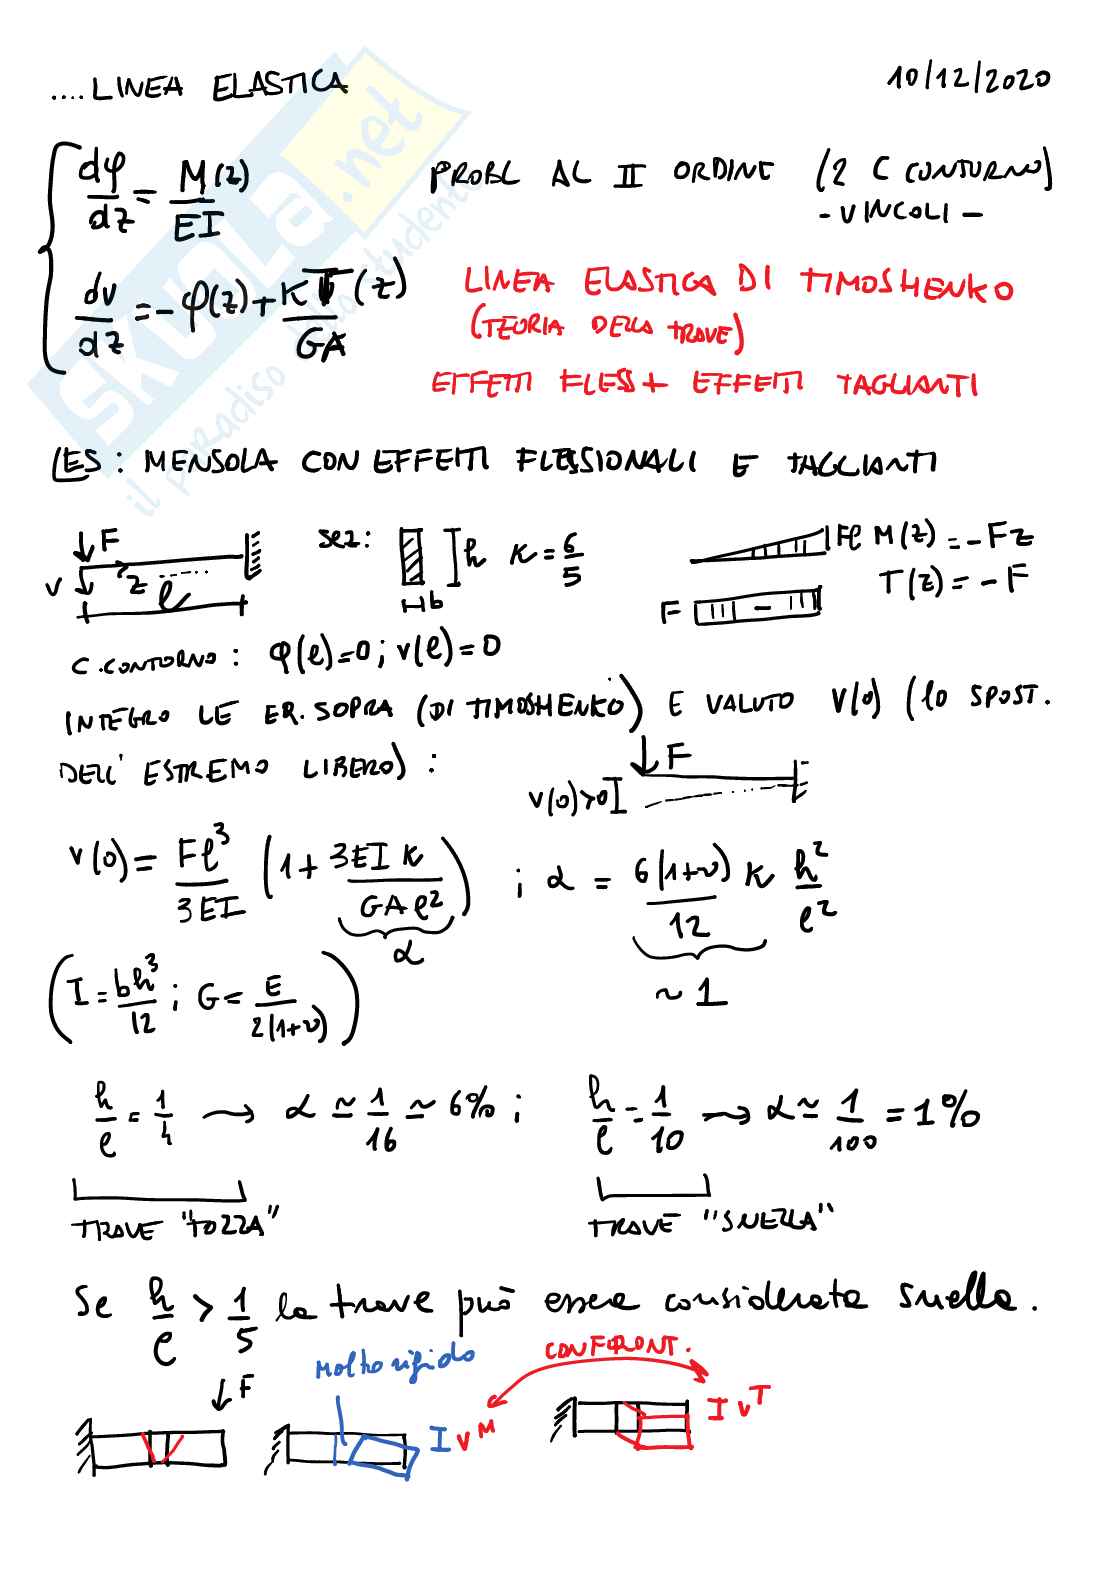 ....LINEA ELASTICA
10/12/2020
dφ/dz = M(z)/EI
PROBL AL II ORDINE (2 C CONTORNO)
- VINCOLI -
dv/dz = -φ(z) + KT(z)/GA
LINEA ELASTICA DI TIMOSHENKO
(TEORIA DELLA TRAVE)
EFFETTI FLESS + EFFETTI TAGLIANTI
ES: MENSOLA CON EFFETTI FLESSIONALI E TAGLIANTI
F
v
z
ℓ
sez:
h
b
K = 6/5
Fℓ M(z) = -Fz
F - T(z) = -F
C.CONTORNO: φ(ℓ)=0; v(ℓ)=0
INTEGRO LE EQ. SOPRA (DI TIMOSHENKO) E VALUTO V(0) (lo SPOST.
DELL' ESTREMO LIBERO):
F
v(0)>0
v(0) = Fℓ³/3EI (1 + 3EI K/GAℓ²) ; α = 6(1+ν)/12 K h²/ℓ²
α
~ 1
(I = bh³/12 ; G = E/2(1+ν))
h/ℓ = 1/4 → α ≃ 1/16 ≃ 6% ; h/ℓ = 1/10 → α ≃ 1/100 = 1%
TRAVE "TOZZA"
TRAVE "SNELLA"
Se h/ℓ > 1/5 la trave può essere considerata snella.
CONFRONT.
Molto rigido
F
vᴹ
vᵀ
SKUOLA.net
il paradiso dello studente